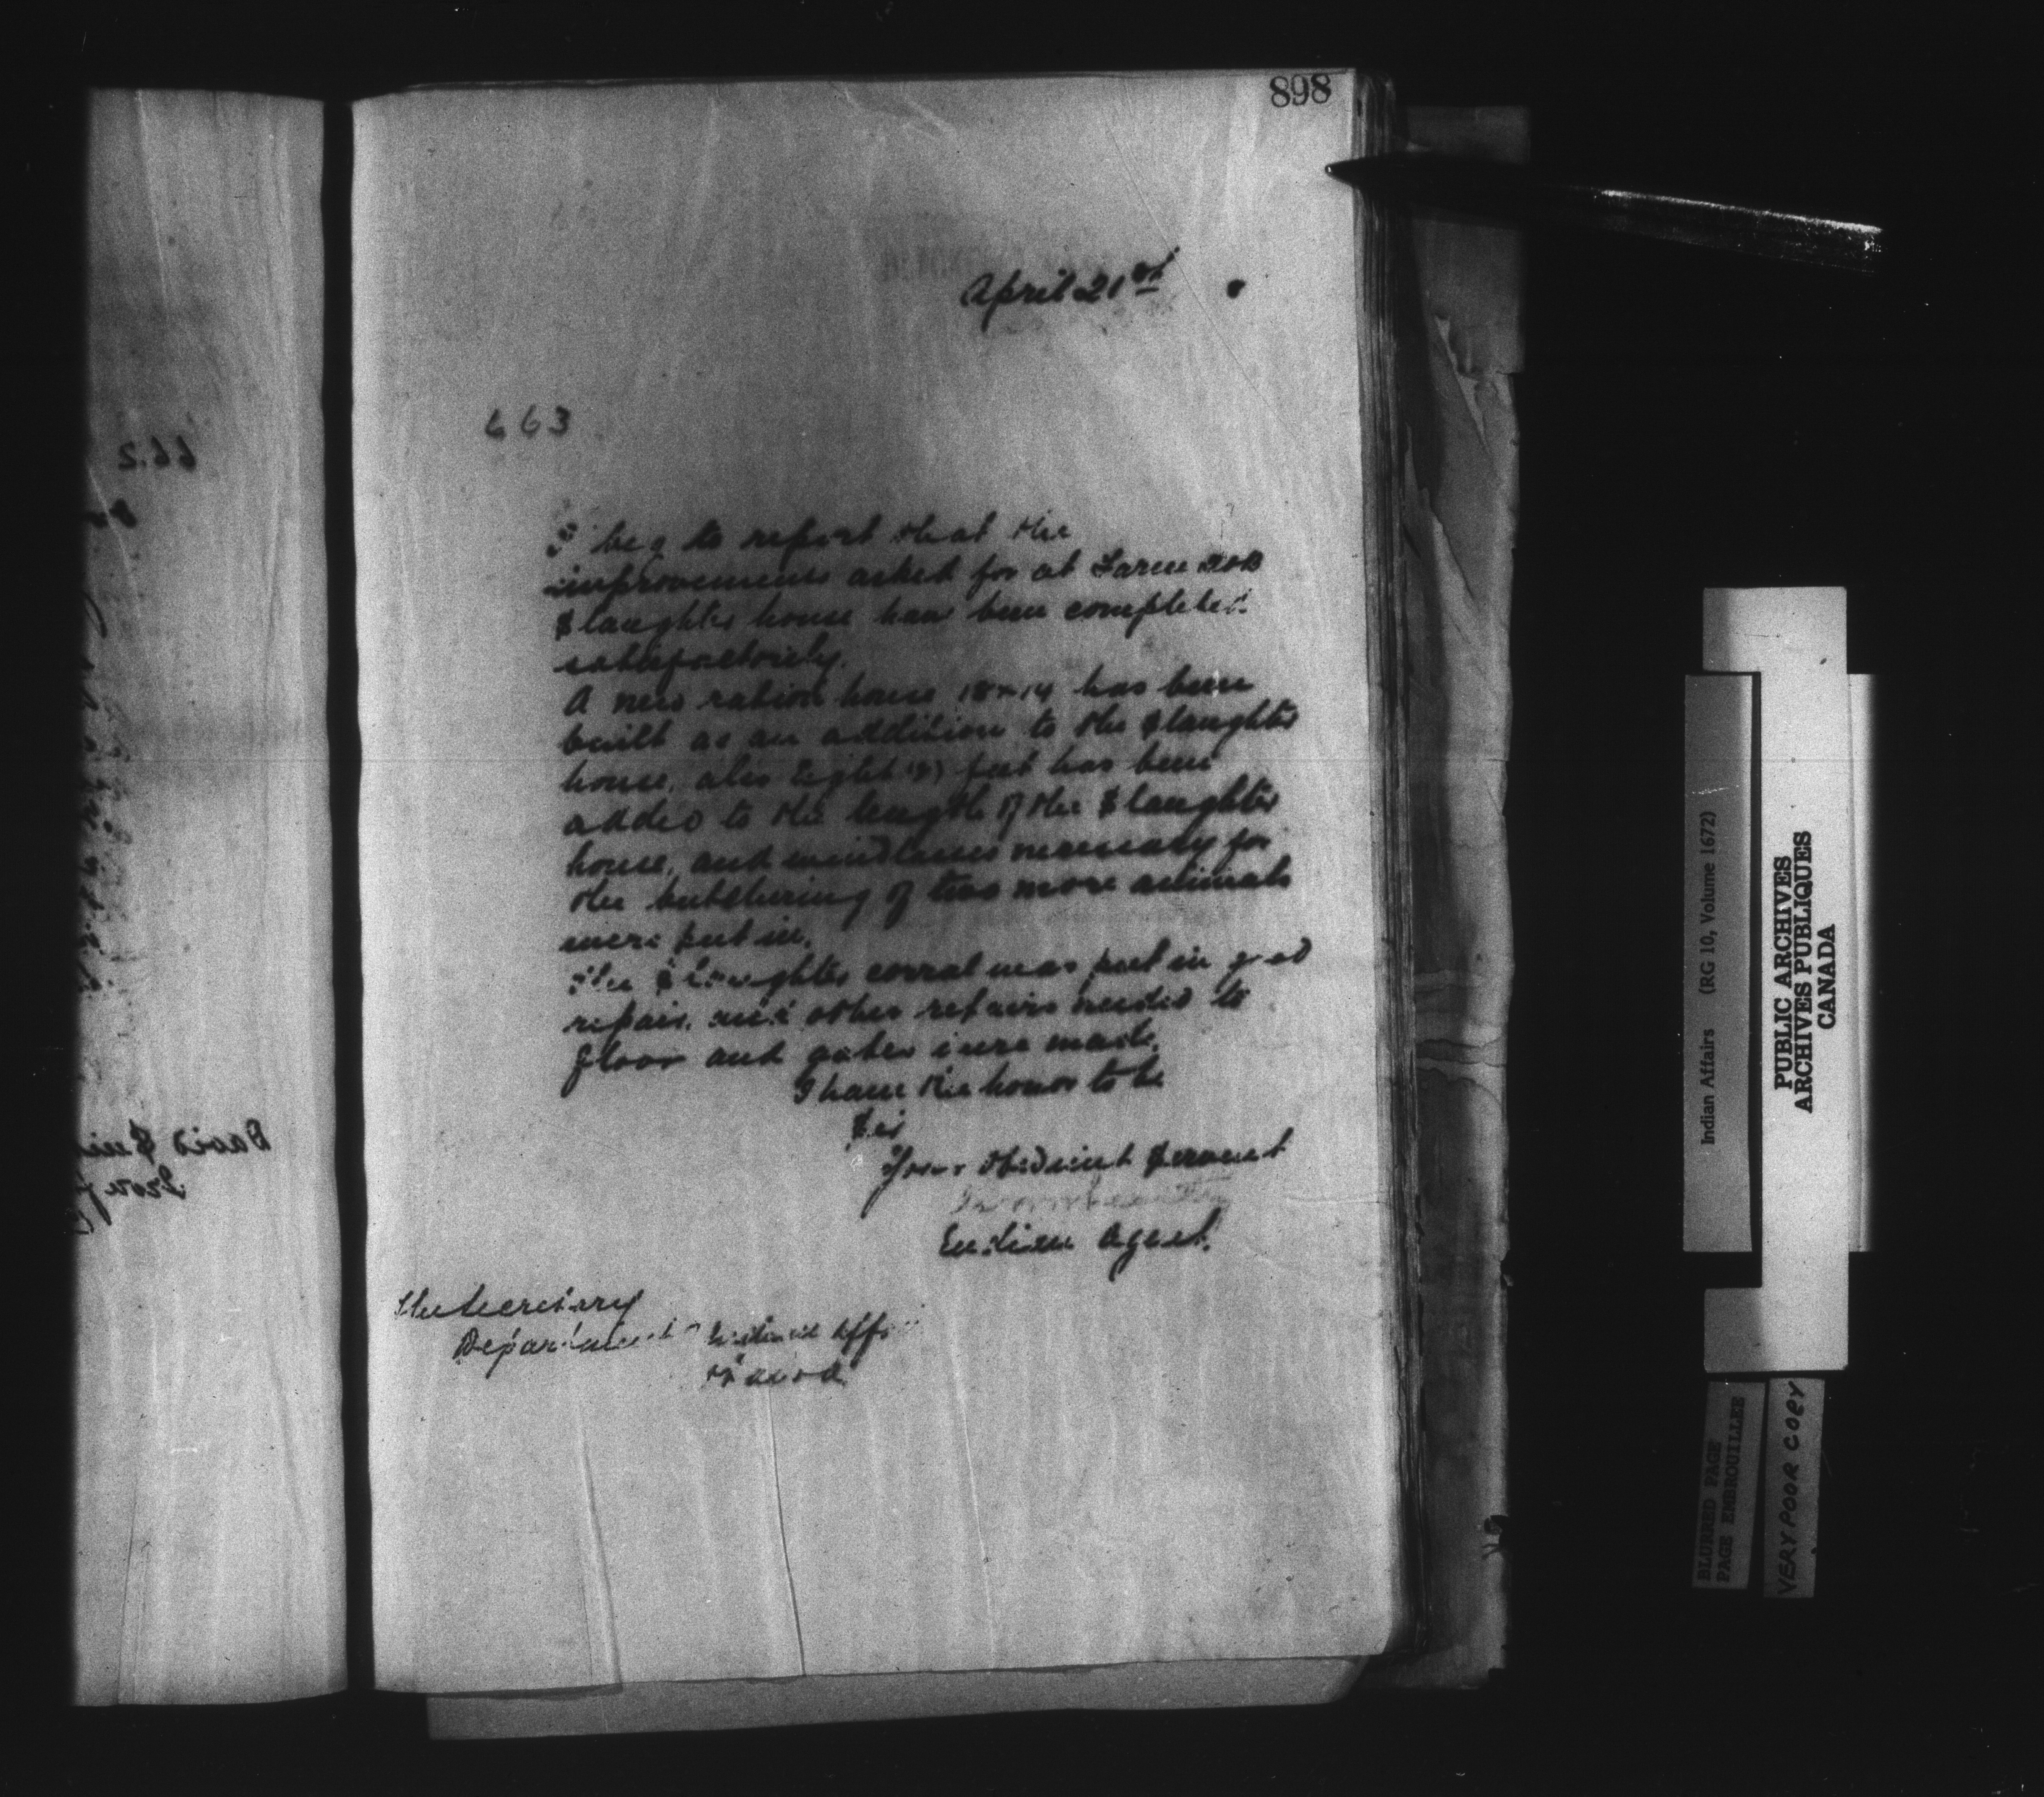 898
April 21st
663
I beg to report that the
improvements asked for at Farm 20B
Slaughter house have been completed
satisfactorily.
A new ration house 18 x 14 has been
built as an addition to the Slaughter
house, also Eight (8) feet has been
added to the length of the Slaughter
house, and windlasses necessary for
the butchering of two more animals
were put in.
The Slaughter corral was put in good
repair, and other repairs needed to
floor and gates were made.
I have the honor to be
Sir
Your obedient Servant
Indian Agent.
The Secretary
Department Indian Aff
Ottawa
662
David
Indian Affairs (RG 10, Volume 1672)
PUBLIC ARCHIVES
ARCHIVES PUBLIQUES
CANADA
BLURRED PAGE
PAGE EMBROUILLEE
VERY POOR COPY